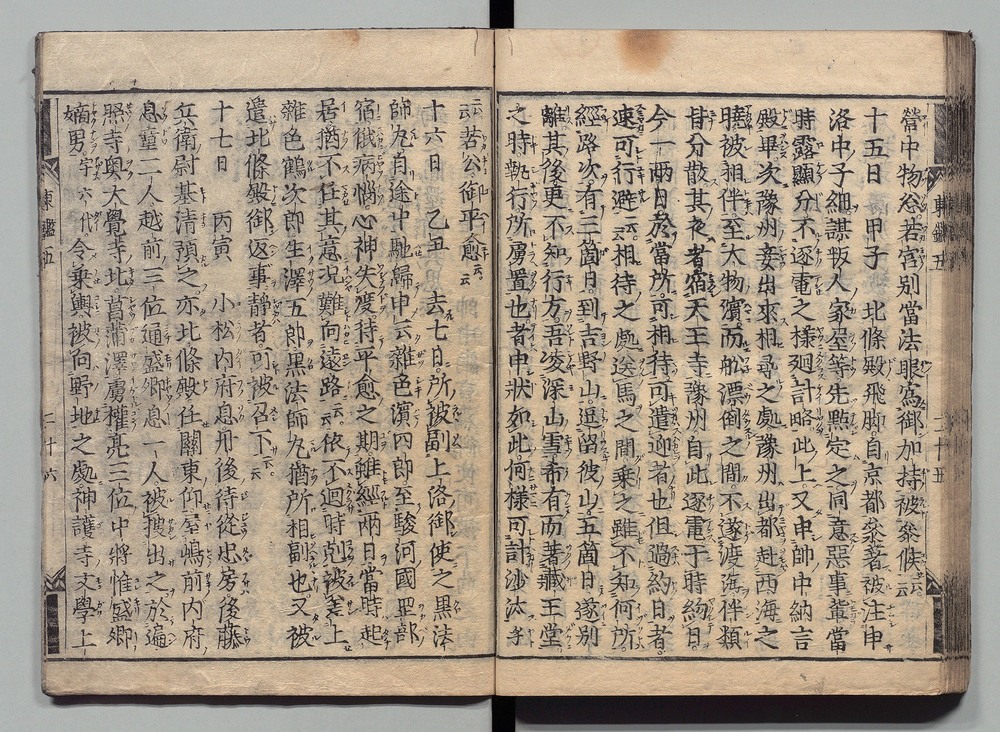 營中物忩若宮別當法眼爲御加持被參候云云
十五日　甲子　北條殿飛脚自京都參著被注申
洛中子細謀叛人家屋等先點定之同意惡事輩當
時露顯分不逐電之樣廻計略此上又申帥中納言
殿畢次豫州妾出來相尋之處豫州出都赴西海之
曉被相伴至大物濱而船漂倒之間不遂渡海伴類
皆分散其夜者宿天王寺豫州自此逐電于時約曰
今一兩日於當所可相待可遣迎者也但過約日者
速可行避云云相待之處送馬之間乘之雖不知何所
經路次有三箇日到吉野山逗留彼山五箇日遂別
離其後更不知行方吾凌深山雪希有而著藏王堂
之時執行所虜置也者申狀如此何樣可計沙汰乎
云云若公御平愈云云
十六日　乙丑　去七日所被副上洛御使之黒法
師丸自途中馳歸申云雜色濱四郎至駿河國岡部
宿俄病惱心神失度待平愈之期雖經兩日當時起
居猶不任其意況難向遠路云云依不廻時剋被差上
雜色鶴次郎生澤五郎黒法師丸猶所相副也又被
遣北條殿御返事靜者可被召下云云
十七日　丙寅　小松内府息丹後侍從忠房後藤
兵衛尉基清預之亦北條殿任關東仰屋嶋前内府
息童二人越前三位通盛卿息一人被搜出之於遍
照寺奥大覺寺北菖蒲澤虜權亮三位中將惟盛卿
嫡男字六代令乘輿被向野地之處神護寺文學上
東鑑五
二十五
東鑑五
二十六